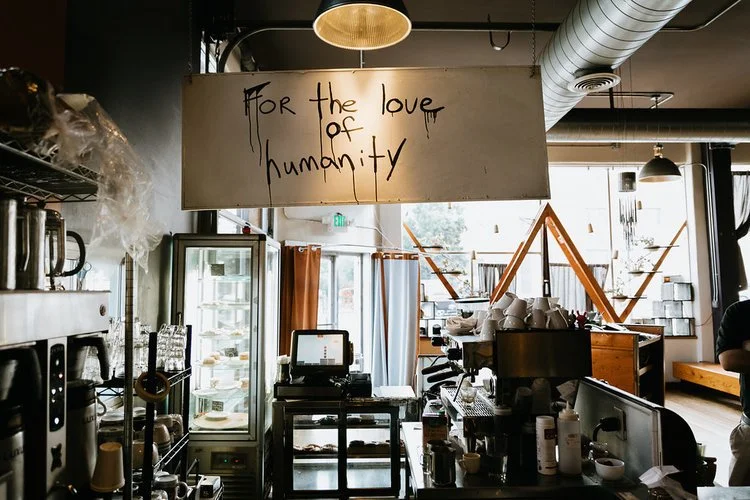 For the love
of
humanity